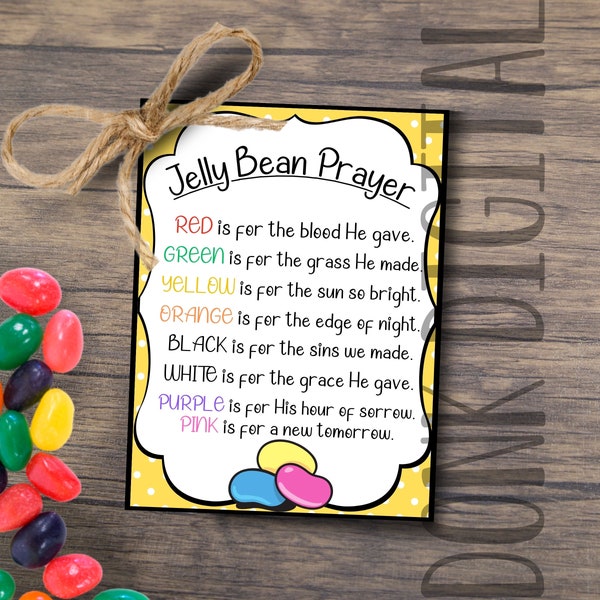 Jelly Bean Prayer
RED is for the blood He gave.
GREEN is for the grass He made.
YELLOW is for the sun so bright.
ORANGE is for the edge of night.
BLACK is for the sins we made.
WHITE is for the grace He gave.
PURPLE is for His hour of sorrow.
PINK is for a new tomorrow.
DONK DIGITAL